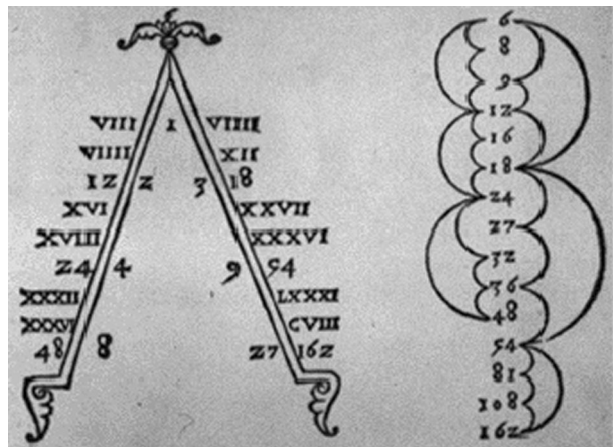 6
VIII 1 VIIII
VIIII XII
12 2 3 18
XVI XXVII
XVIII XXXVI
24 4 9 54
XXXII LXXXI
XXXVI CVIII
48 8 27 162
6
8
9
12
16
18
24
27
32
36
48
54
81
108
162